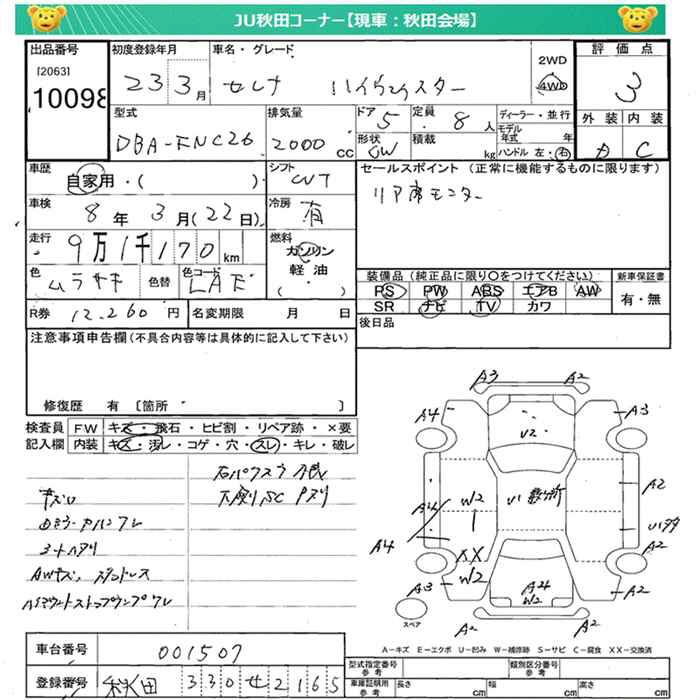 JU秋田コーナー【現車：秋田会場】
出品番号 初度登録年月 車名・グレード 評価点
[2063]
10098
23 3月 セレナ ハイウェイスター
2WD
4WD
3
型式 排気量 ドア 定員 ディーラー・並行
DBA-FNC26 2000 CC 5 8人
形状 積載 モデル年式 年
kg ハンドル 左・右
外装 内装
A C
車歴 シフト セールスポイント（正常に機能するものに限ります）
自家用・( ) CVT リア席モニター
車検 8年 3月(22日) 冷房 有
走行 9万1千170km 燃料 ガソリン
軽油
・( )
色 ムラサキ 色替 色コード LAE
装備品（純正品に限り○をつけてください） 新車保証書
PS PW ABS エアB AW 有・無
SR ナビ TV カワ
R券 12,260円 名変期限 月 日
後日品
注意事項申告欄（不具合内容等は具体的に記入して下さい）
修復歴 有 〔箇所 〕
検査員 FW キズ・飛石・ヒビ割・リペア跡・×要
記入欄 内装 キズ・汚レ・コゲ・穴・スレ・キレ・破レ
キズ
シートヘタリ
AWキズ
ハイマウントストップランプワレ
下廻りSC
A3 A2
A4 A3
U2
A2
W2 U1
A4
XX
W2
A3 A2
A24
W2
A2 A2
スペア
A－キズ E－エクボ U－凹み W－補修跡 S－サビ C－腐食 XX－交換済
車台番号 001507
登録番号 秋田 330 せ 2165
型式指定番号 参考 類別区分番号 参考
車庫証明用 参考 長さ cm 幅 cm 高さ cm